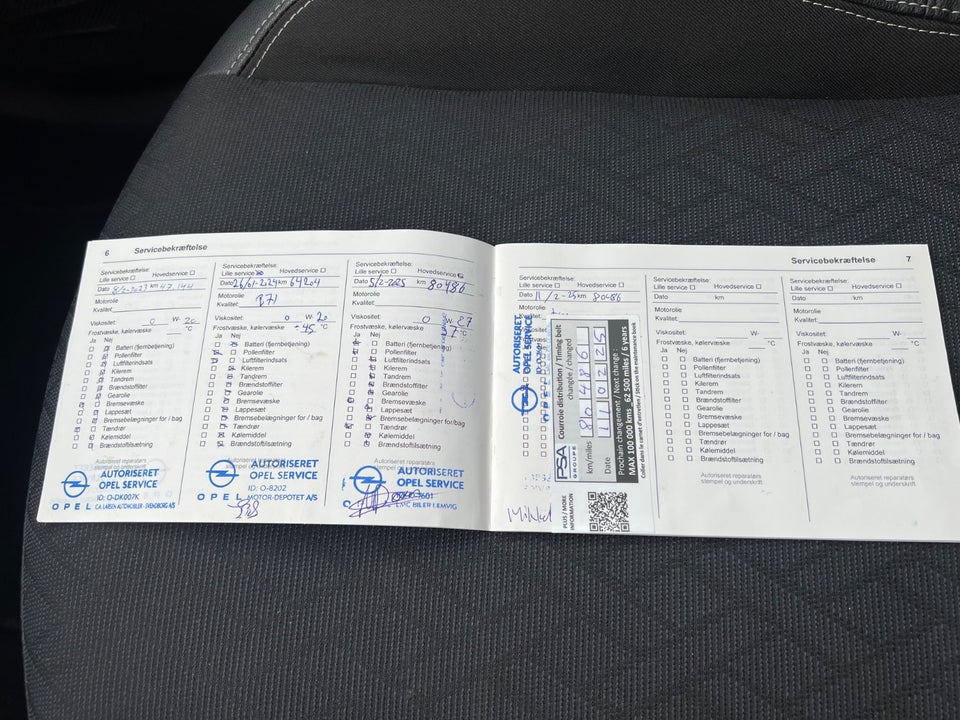 6 Servicebekræftelse
Servicebekræftelse:
Lille service Hovedservice
Dato 8/2-2023 km 47.144
Motorolie
Kvalitet:
Viskositet: 0 W- 20
Frostvæske, kølervæske °C
Ja Nej
Batteri (fjernbetjening)
Pollenfilter
Luftfilterindsats
Kilerem
Tandrem
Brændstoffilter
Gearolie
Bremsevæske
Lappesæt
Bremsebelægninger for / bag
Tændrør
Kølemiddel
Brændstoftilsætning
Autoriseret reparatørs
stempel og underskrift
AUTORISERET
OPEL SERVICE
ID: O-DK007K
OPEL C.A. LARSEN AUTOMOBILER · SVENDBORG A/S
Servicebekræftelse:
Lille service Hovedservice
Dato 26/01-2024 km 64204
Motorolie
Kvalitet: B71
Viskositet: 0 W- 20
Frostvæske, kølervæske -45 °C
Ja Nej
Batteri (fjernbetjening)
Pollenfilter
Luftfilterindsats
Kilerem
Tandrem
Brændstoffilter
Gearolie
Bremsevæske
Lappesæt
Bremsebelægninger for / bag
Tændrør
Kølemiddel
Brændstoftilsætning
AUTORISERET
OPEL SERVICE
ID: O-8202
OPEL MOTOR-DEPOTET A/S
Servicebekræftelse:
Lille service Hovedservice
Dato 5/2-2025 km 80486
Motorolie
Kvalitet:
Viskositet: 0 W-
Frostvæske, kølervæske °C
Ja Nej
Batteri (fjernbetjening)
Pollenfilter
Luftfilterindsats
Kilerem
Tandrem
Brændstoffilter
Gearolie
Bremsevæske
Lappesæt
Bremsebelægninger for / bag
Tændrør
Kølemiddel
Brændstoftilsætning
AUTORISERET
OPEL SERVICE
BILER LEMVIG
Servicebekræftelse 7
Servicebekræftelse:
Lille service Hovedservice
Dato 11/2-25 km 80486
Motorolie
Kvalitet:
AUTORISERET
OPEL SERVICE
PSA
GROUPE
Courroie distribution / Timing belt
changée / changed
km/miles 80486
Date 110225
Prochain changement / Next change
MAX 100 000 kms_62 500 miles / 6 years
Coller dans le carnet d'entretien / Stick on the maintenance book
PLUS / MORE
INFORMATION
Mikkel
Servicebekræftelse:
Lille service Hovedservice
Dato km
Motorolie
Kvalitet:
Viskositet: W-
Frostvæske, kølervæske °C
Ja Nej
Batteri (fjernbetjening)
Pollenfilter
Luftfilterindsats
Kilerem
Tandrem
Brændstoffilter
Gearolie
Bremsevæske
Lappesæt
Bremsebelægninger for / bag
Tændrør
Kølemiddel
Brændstoftilsætning
Autoriseret reparatørs
stempel og underskrift
Servicebekræftelse:
Lille service Hovedservice
Dato km
Motorolie
Kvalitet:
Viskositet: W-
Frostvæske, kølervæske °C
Ja Nej
Batteri (fjernbetjening)
Pollenfilter
Luftfilterindsats
Kilerem
Tandrem
Brændstoffilter
Gearolie
Bremsevæske
Lappesæt
Bremsebelægninger for / bag
Tændrør
Kølemiddel
Brændstoftilsætning
Autoriseret reparatørs
stempel og underskrift